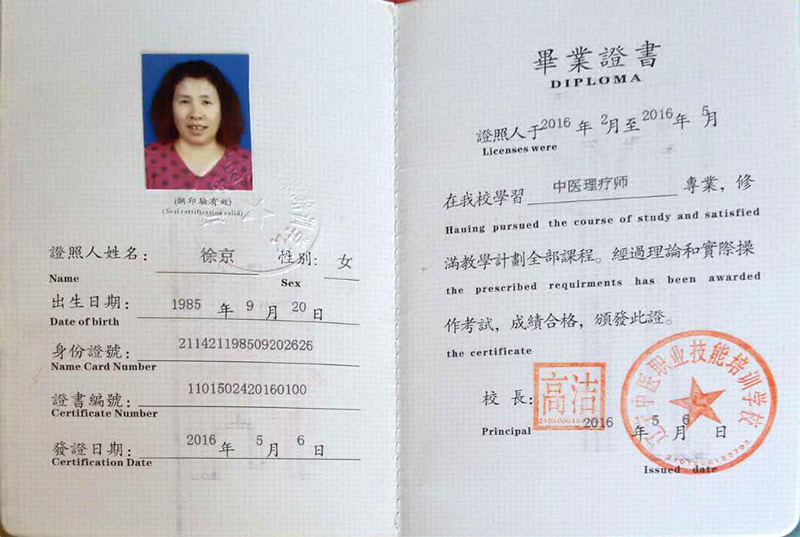 (鋼印驗有效)
(Seal certification valid)
證照人姓名: 徐京 性别: 女
Name Sex
出生日期: 1985 年 9 月 20 日
Date of birth
身份證號: 211421198509202626
Name Card Number
證書編號: 1101502420160100
Certificate Number
發證日期: 2016 年 5 月 6 日
Certification Date
畢業證書
DIPLOMA
證照人于2016 年 2月至2016年 5月
Licenses were
在我校學習 中医理疗师 專業,修
Hauing pursued the course of study and satisfied
滿教學計劃全部課程。經過理論和實際操
the prescribed requirments has been awarded
作考試,成績合格,頒發此證。
the certificate
校 長: 高洁
Principal 2016 年 5 月 6 日
Issued date
中医职业技能培训学校